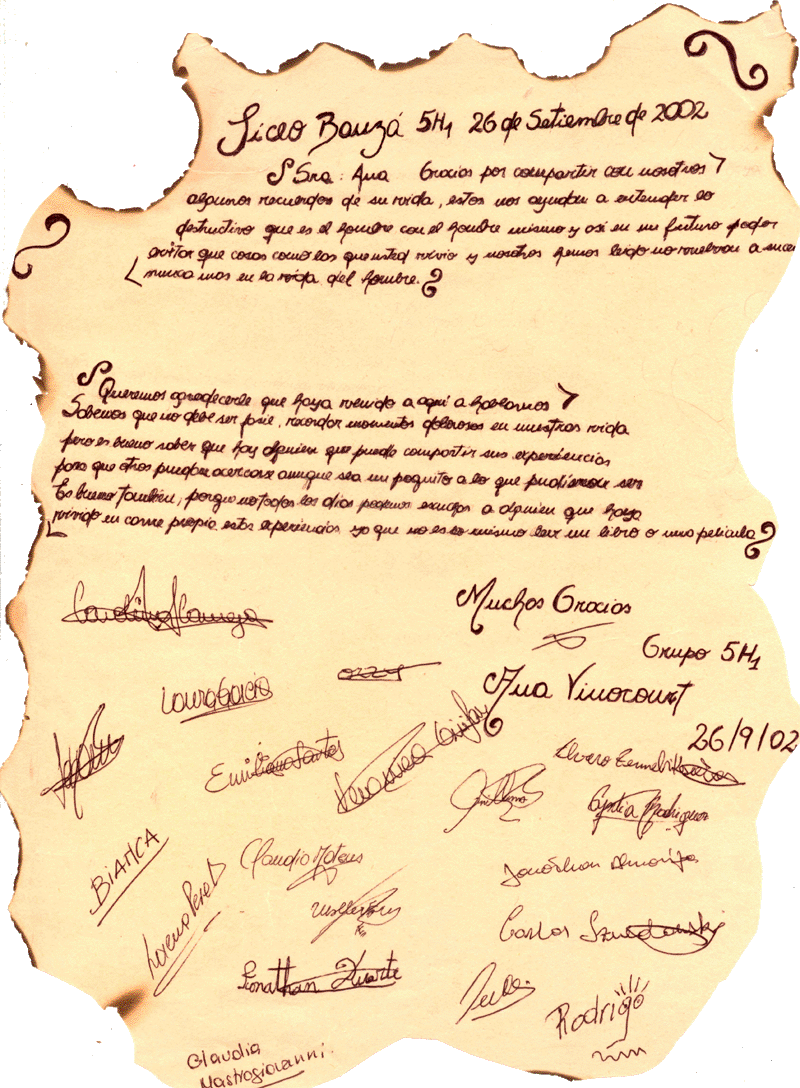 Liceo Bauzá 5H1 26 de Setiembre de 2002
Sra: Ana Gracias por compartir con nosotros
algunos recuerdos de su vida, estos nos ayudan a entender lo
destructivo que es el hombre con el hombre mismo y así en un futuro poder
evitar que cosas como las que usted vivio y nosotros hemos leido no vuelvan a
nunca mas en la vida del hombre.
Queremos agradecerle que haya venido a aquí a hablarnos
Sabemos que no debe ser facil, recordar momentos dolorosos en nuestras vida
pero es bueno saber que hay alguien que puede compartir sus experiencias
para que otros puedan acercarse aunque sea un poquito a lo que pudieron ser
Es bueno también, porque no todos los dias podemos escuchar a alguien que haya
vivido en carne propia estas experiencias ya que no es lo mismo leer un libro o una pelicula
Muchas Gracias
Grupo 5H1
Laura Garcia
ozzy
Ana Vinocourt
26/9/02
Emiliano Santos
Veronica
Alvaro
Guillermo
Cyntia Rodriguez
BiANCA
Claudia Mateus
Jonathan Almeida
Lorena Perez
Carlos
Jonathan Duarte
Rodrigo
Claudia
Mastrogiovanni.